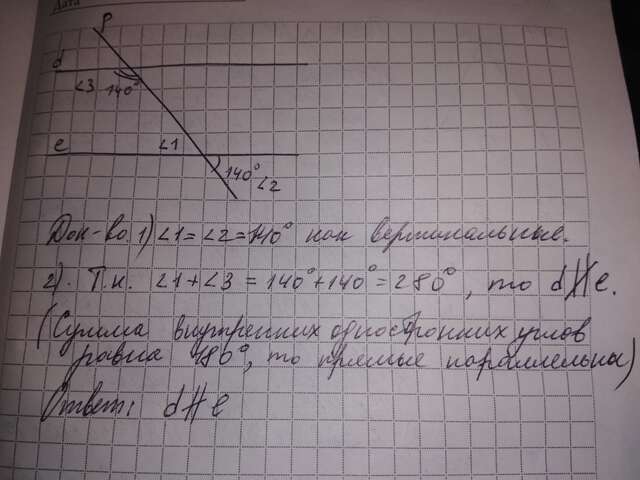 Дата
p
d
∠3 140°
e
∠1
140°
∠2
Док-во. 1) ∠1=∠2=140° как вертикальные.
2). Т.к. ∠1+∠3 = 140°+140°=280°, то d∦e.
(Сумма внутренних односторонних углов
равна 180°, то прямые параллельны)
Ответ: d∦e